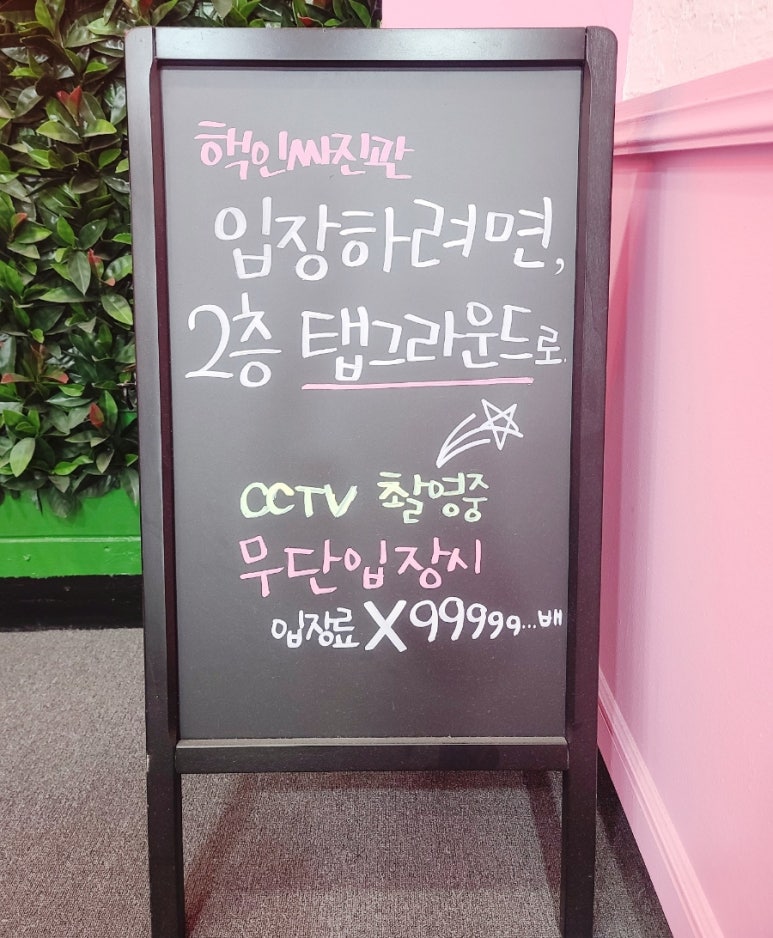 핵인싸진관
입장하려면,
2층 탭그라운드로.
CCTV 촬영중
무단입장시
입장료 X99999...배